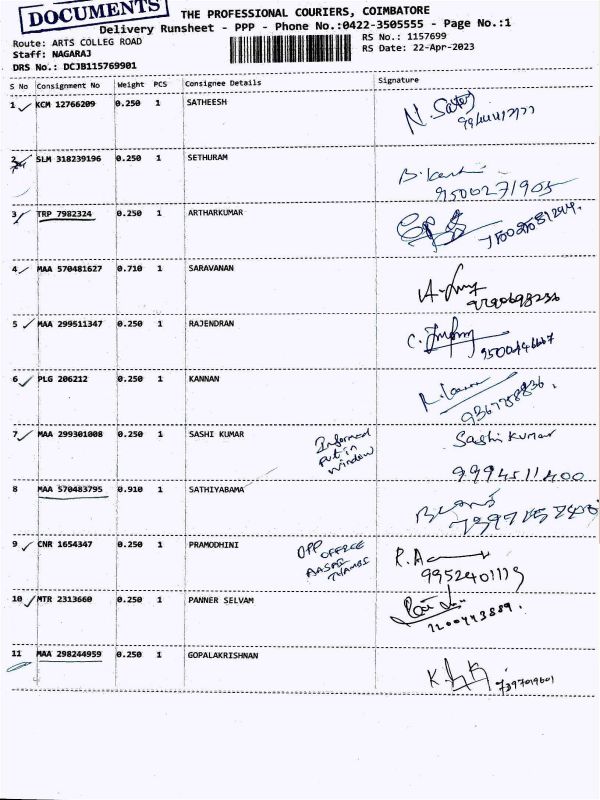 DOCUMENTS
THE PROFESSIONAL COURIERS, COIMBATORE
Delivery Runsheet - PPP - Phone No.:0422-3505555 - Page No.:1
Route: ARTS COLLEG ROAD
RS No.: 1157699
Staff: NAGARAJ
RS Date: 22-Apr-2023
DRS No.: DCJB115769901
S No Consignment No Weight PCS Consignee Details Signature
1 KCM 12766209 0.250 1 SATHEESH
2 SLM 318239196 0.250 1 SETHURAM
9500271905
3 TRP 7982324 0.250 1 ARTHARKUMAR
4 MAA 570481627 0.710 1 SARAVANAN
5 MAA 299511347 0.250 1 RAJENDRAN
6 PLG 206212 0.250 1 KANNAN
7 MAA 299301008 0.250 1 SASHI KUMAR Informed Sashi Kumar
put in
window
9994511400
8 MAA 570483795 0.910 1 SATHIYABAMA
9 CNR 1654347 0.250 1 PRAMODHINI OPP
OFFICE
9952401113
10 MTR 2313660 0.250 1 PANNER SELVAM
11 MAA 298244959 0.250 1 GOPALAKRISHNAN